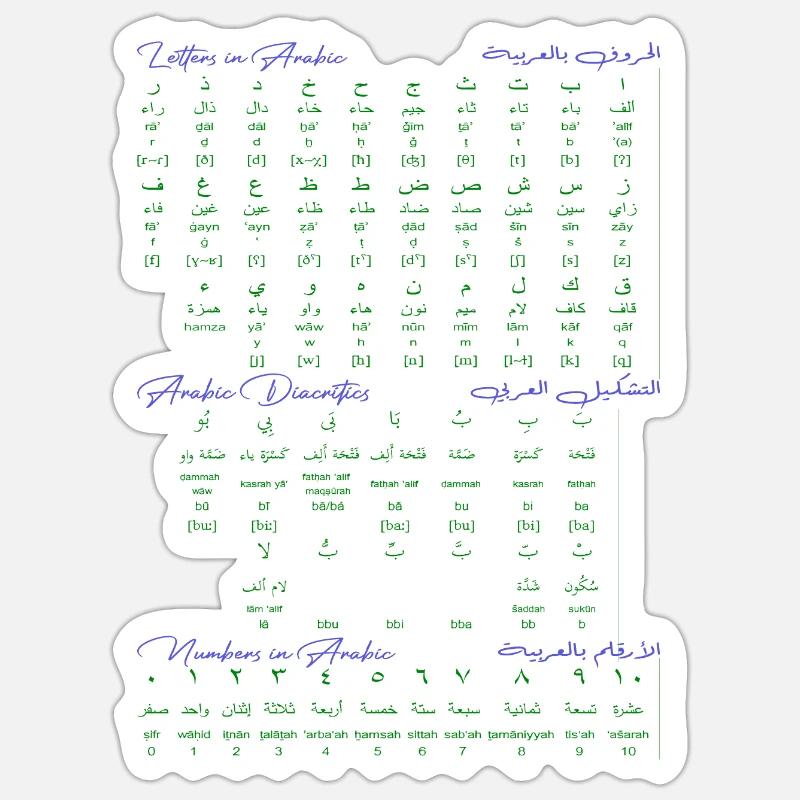 Letters in Arabic الحروف بالعربية
ا ب ت ث ج ح خ د ذ ر
ألف باء تاء ثاء جيم حاء خاء دال ذال راء
rāʾ ḏāl dāl ḫāʾ ḥāʾ ǧīm ṯāʾ tāʾ bāʾ ʾalif
r ḏ d ḫ ḥ ǧ ṯ t b ʾ(a)
[r~ɾ] [ð] [d] [x~χ] [ħ] [ʤ] [θ] [t] [b] [ʔ]
ز س ش ص ض ط ظ ع غ ف
زاي سين شين صاد ضاد طاء ظاء عين غين فاء
fāʾ ġayn ʿayn ẓāʾ ṭāʾ ḍād ṣād šīn sīn zāy
f ġ ʿ ẓ ṭ ḍ ṣ š s z
[f] [ɣ~ʁ] [ʕ] [ðˤ] [tˤ] [dˤ] [sˤ] [ʃ] [s] [z]
ق ك ل م ن ه و ي ء
قاف كاف لام ميم نون هاء واو ياء همزة
hamza yāʾ wāw hāʾ nūn mīm lām kāf qāf
y w h n m l k q
[j] [w] [h] [n] [m] [l~ɫ] [k] [q]
Arabic Diacritics التشكيل العربي
بَ بِ بُ بَا بَى بِي بُو
فَتْحَة كَسْرَة ضَمَّة فَتْحَة أَلِف فَتْحَة أَلِف كَسْرَة ياء ضَمَّة واو
ḍammah wāw kasrah yāʾ fatḥah ʾalif maqṣūrah fatḥah ʾalif ḍammah kasrah fathah
bū bī bā/bá bā bu bi ba
[buː] [biː] [baː] [bu] [bi] [ba]
بْ بّ بَّ بِّ بُّ لا
سُكُون شَدَّة لام ألف
lām ʾalif šaddah sukūn
lā bbu bbi bba bb b
Numbers in Arabic الأرقلم بالعربية
٠ ١ ٢ ٣ ٤ ٥ ٦ ٧ ٨ ٩ ١٠
صفر واحد إثنان ثلاثة أربعة خمسة ستة سبعة ثمانية تسعة عشرة
ṣifr wāḥid iṯnān ṯalāṯah ʾarbaʿah ḫamsah sittah sabʿah ṯamāniyyah tisʿah ʿašarah
0 1 2 3 4 5 6 7 8 9 10